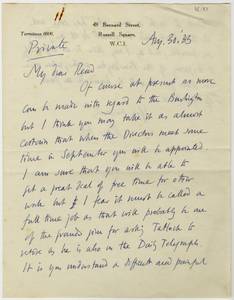 48 Bernard Street,
Terminus 6806. Russell Square,
W.C.1.
Private Aug. 30. 33
My dear Read
Of course at present no move
can be made with regard to the Burlington
but I think you may take it as almost
certain that when the Directors meet some
time in September you will be appointed.
I am sure that you will be able to
get a great deal of free time for other
work but I fear it must be called a
full time job as that will probably be one
of the grounds for asking Tatlock to
retire as he is also on the Daily Telegraph.
It is you understand a difficult and painful